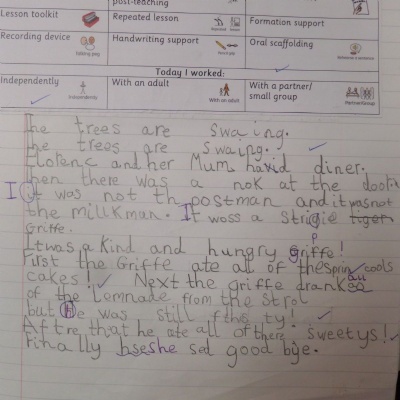 post-teaching
Lesson toolkit Repeated lesson Formation support
Recording device Handwriting support Oral scaffolding
Today I worked:
Independently With an adult With a partner/
small group
The trees are swaing.
the trees are swaing.
Elorenc and her Mum havid diner.
then there was a nok at the door
It was not th postman and it was not
the millkman. It woss a strigie tiger
Griffe.
It was a kind and hungry griffe!
First the Griffe ate all of the
cakes! Next the griffe drank all
of the lemnade from the
but He was still ty!
Aftre that he ate all of there sweetys!
Finally he sed good bye.